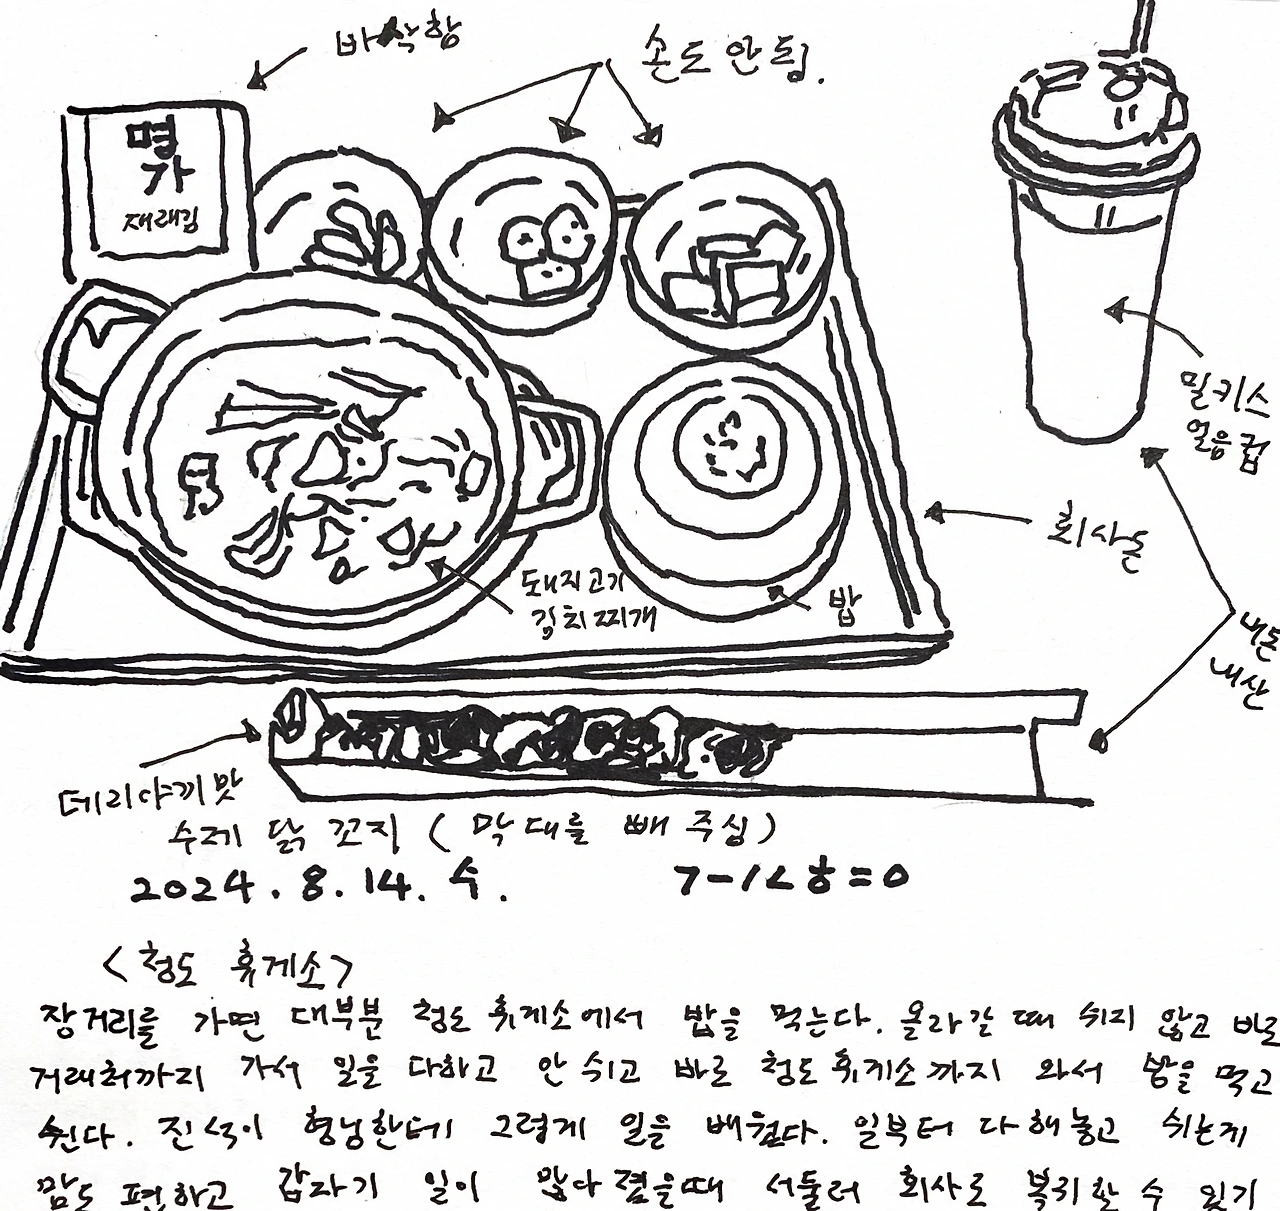 바삭함
손도 안 댐.
명가
재래김
밀키스
얼음컵
회사돈
돼지고기
김치찌개
밥
내돈
내산
데리야끼 맛
수제 닭꼬지 ( 막대를 빼 주심 )
2024. 8. 14. 수.
<청도 휴게소>
장거리를 가면 대부분 청도 휴게소에서 밥을 먹는다. 올라갈 때 쉬지 않고 바로
거래처까지 가서 일을 다하고 안 쉬고 바로 청도 휴게소까지 와서 밥을 먹고
쉰다. 진석이 형님한테 그렇게 일을 배웠다. 일부터 다 해놓고 쉬는게
맘도 편하고 갑자기 일이 많아 졌을때 서둘러 회사로 복귀할 수 있기